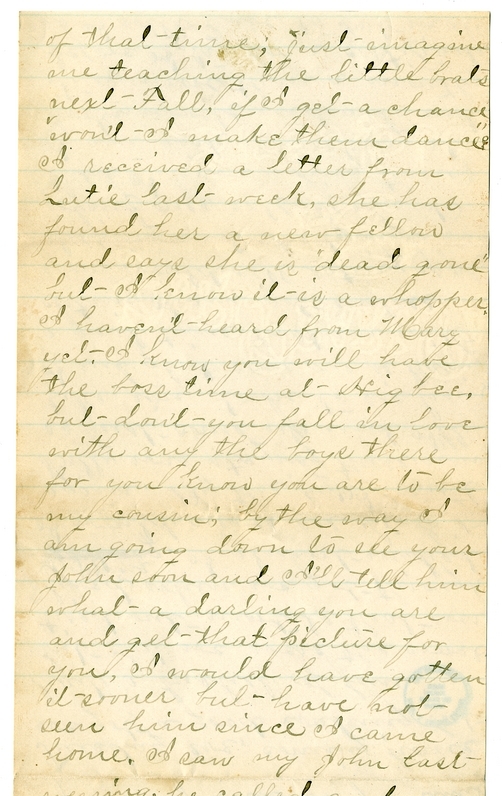 of that time; just imagine
me teaching the little brats
next Fall, if I get a chance
"won't I make them dance"?
I received a letter from
Lutie last week, she has
found her a new fellow
and says she is "dead gone"
but I know it is a whopper.
I haven't heard from Mary
yet. I know you will have
the boss time at Higbee,
but don't you fall in love
with any the boys there
for you know you are to be
my cousin; by the way I
am going down to see your
John soon and I'll tell him
what a darling you are
and get that picture for
you, I would have gotten
it sooner but have not
seen him since I came
home. I saw my John last
he called